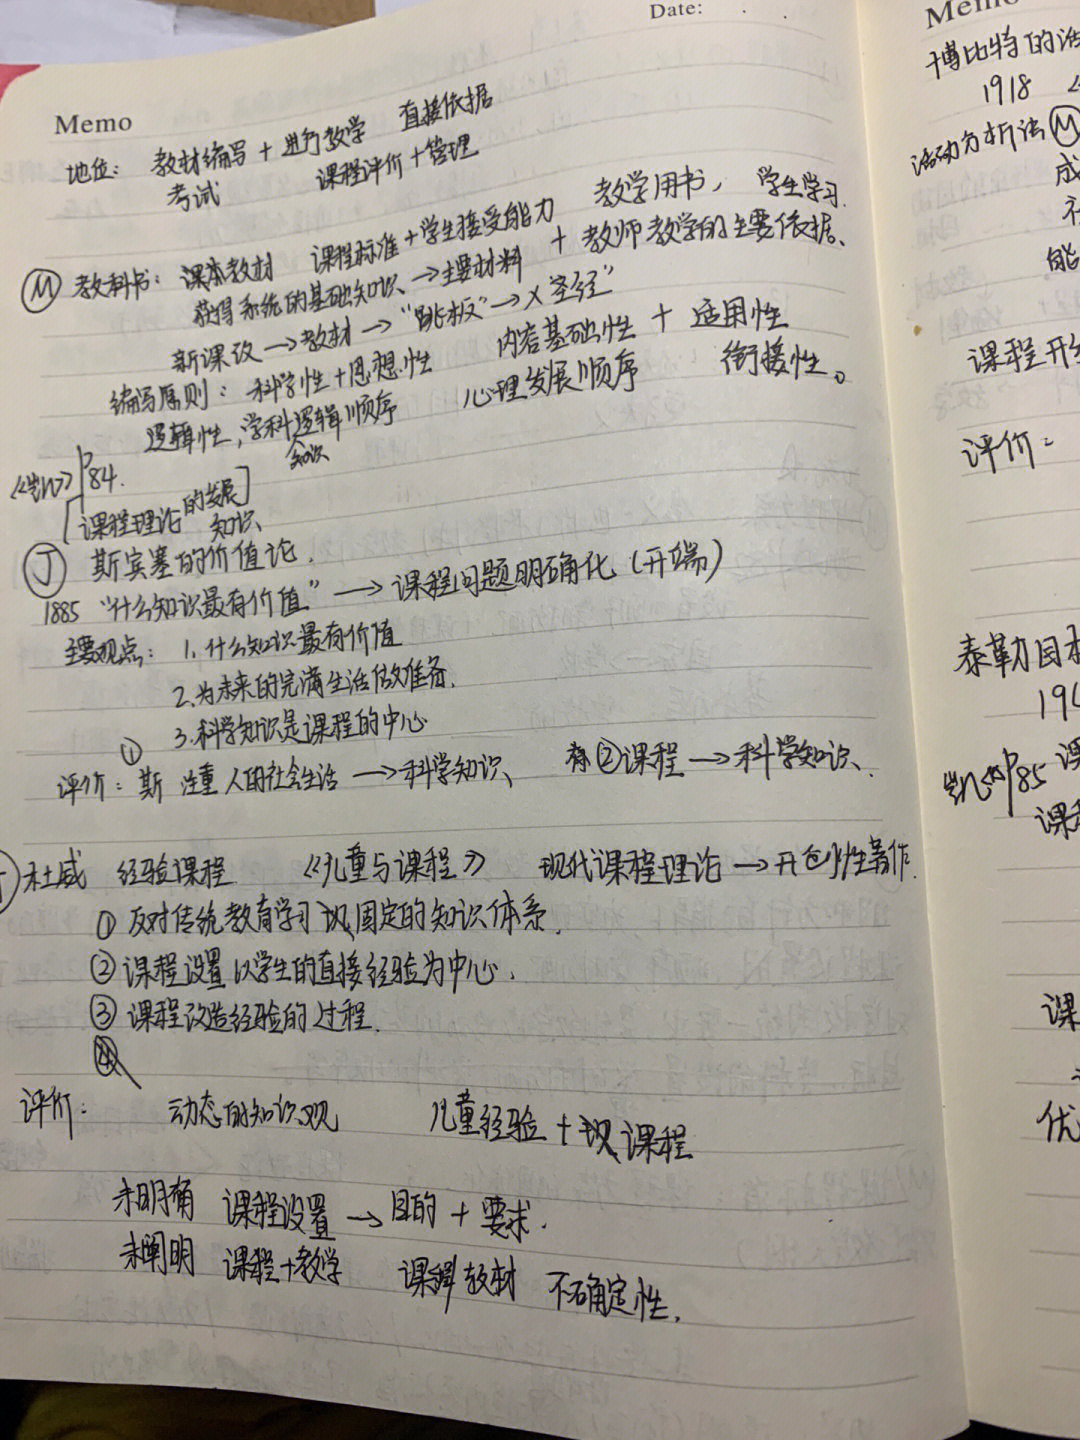 Date:
Memo
地位： 教材编写 + 进行教学 直接依据
考试 课程评价 + 管理
Ⓜ 教科书： 课本教材 课程标准 + 学生接受能力 教学用书， 学生学习.
获得系统的基础知识 → 主要材料 + 教师教学的主要依据、
新课改 → 教材 → “跳板” → × 圣经”
编写原则： 科学性 + 思想性 内容基础性 + 适用性
逻辑性，学科逻辑顺序 心理发展顺序 衔接性。
知识
P84.
[课程理论的发展]
知识
Ⓙ 斯宾塞的价值论.
1885 “什么知识最有价值” → 课程问题明确化（开端）
主要观点： 1. 什么知识最有价值
2. 为未来的完满生活做准备.
3. 科学知识是课程的中心
评价： ① 斯 注重 人的社会生活 → 科学知识、 ② 课程 → 科学知识、
杜威 经验课程 《儿童与课程》 现代课程理论 → 开创性著作.
① 反对传统教育学习 固定的知识体系.
② 课程设置以学生的直接经验为中心.
③ 课程改造经验的过程.
④
评价： 动态的知识观 儿童经验 + 课程
未明确 课程设置 → 目的 + 要求.
未阐明 课程+教学 教材 不确定性.
Memo
博比特的活
1918
活动分析法 Ⓜ
成
社
能
课程开
评价：
泰勒目
194
P85 课
课程
课
优